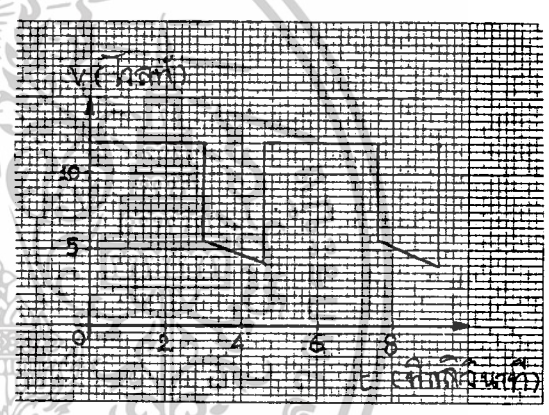 V (โวลท์)
10
5
0 2 4 6 8
t (มิลลิวินาที)